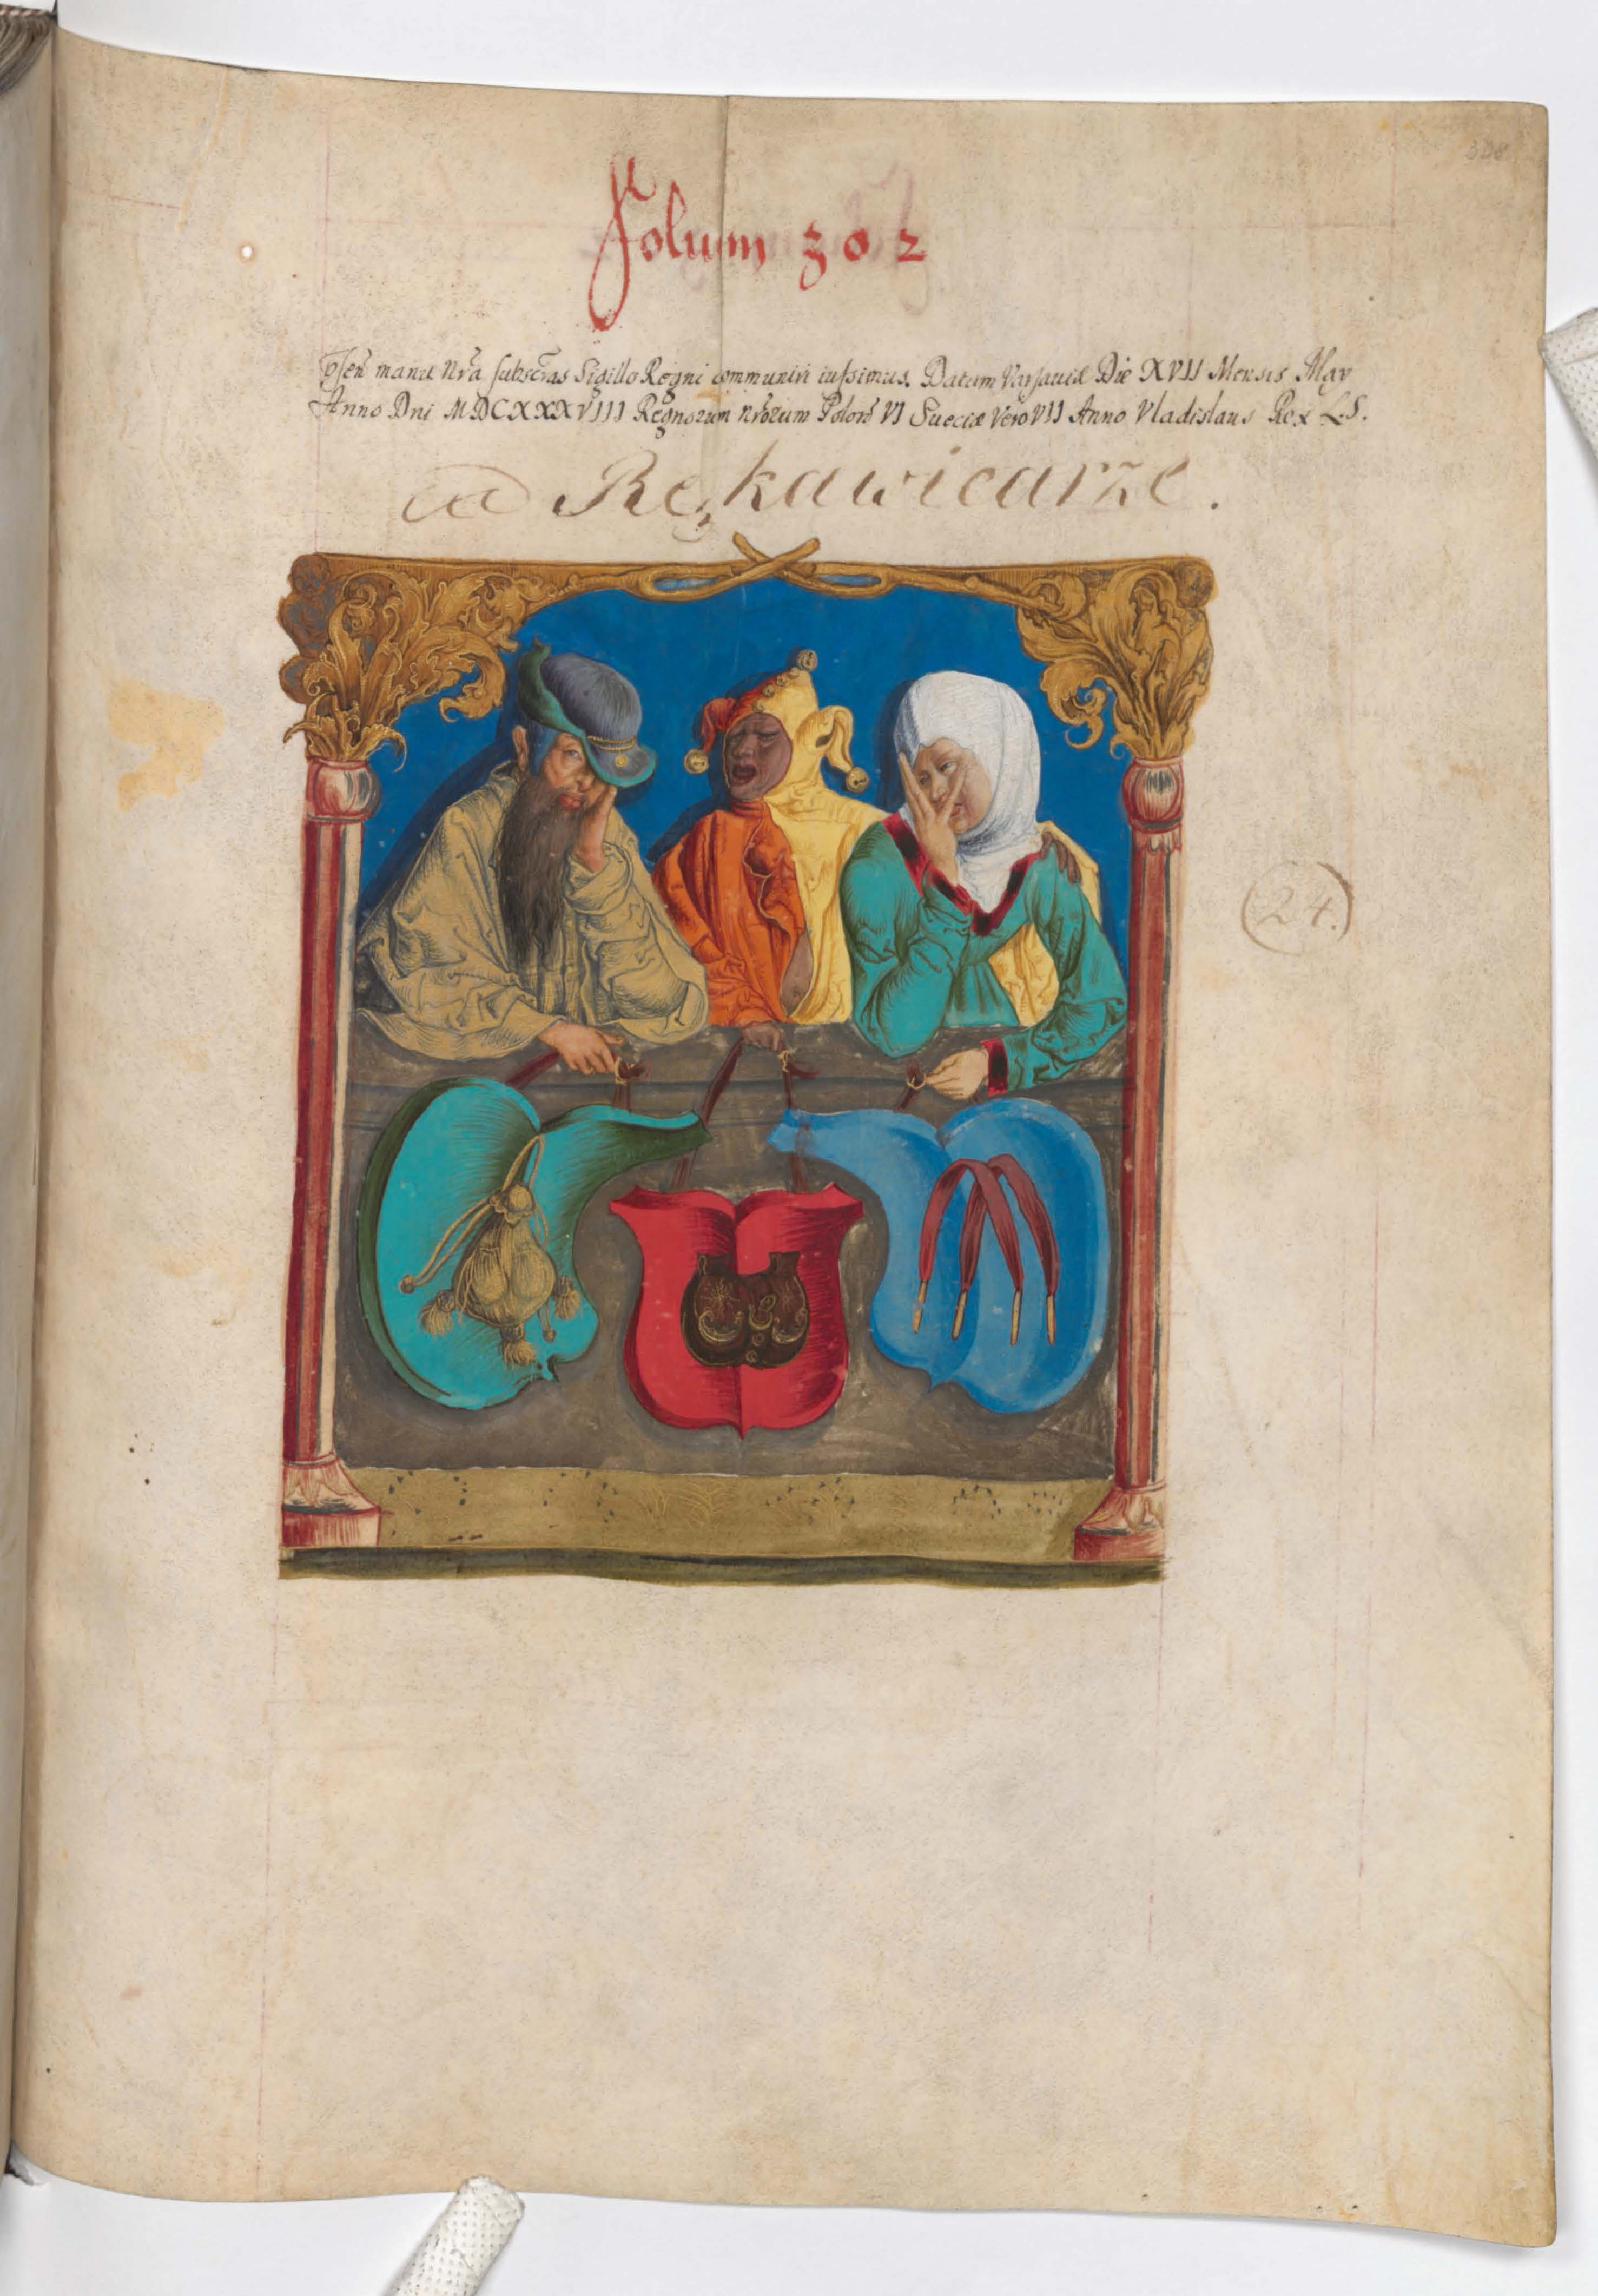 308
Folium 302
p̃sen̄ manu nr̃a subscr̃as Sigillo Regni communiri iussimus. Datum Varsaviæ Die XVII Mensis May
Anno Dni MDCXXXVIII Regnorum nr̃orum Polon̄ VI Sueciæ Vero VII Anno Vladislaus Rex L.S.
Rękawicarze.
24.